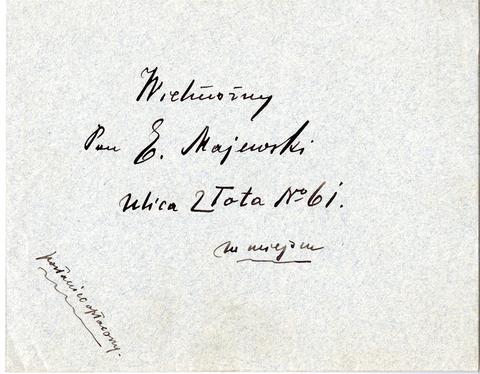 Wielmożny
Pan E. Majewski
ulica Złota No 61.
w miejscu
posłaniec opłacony.